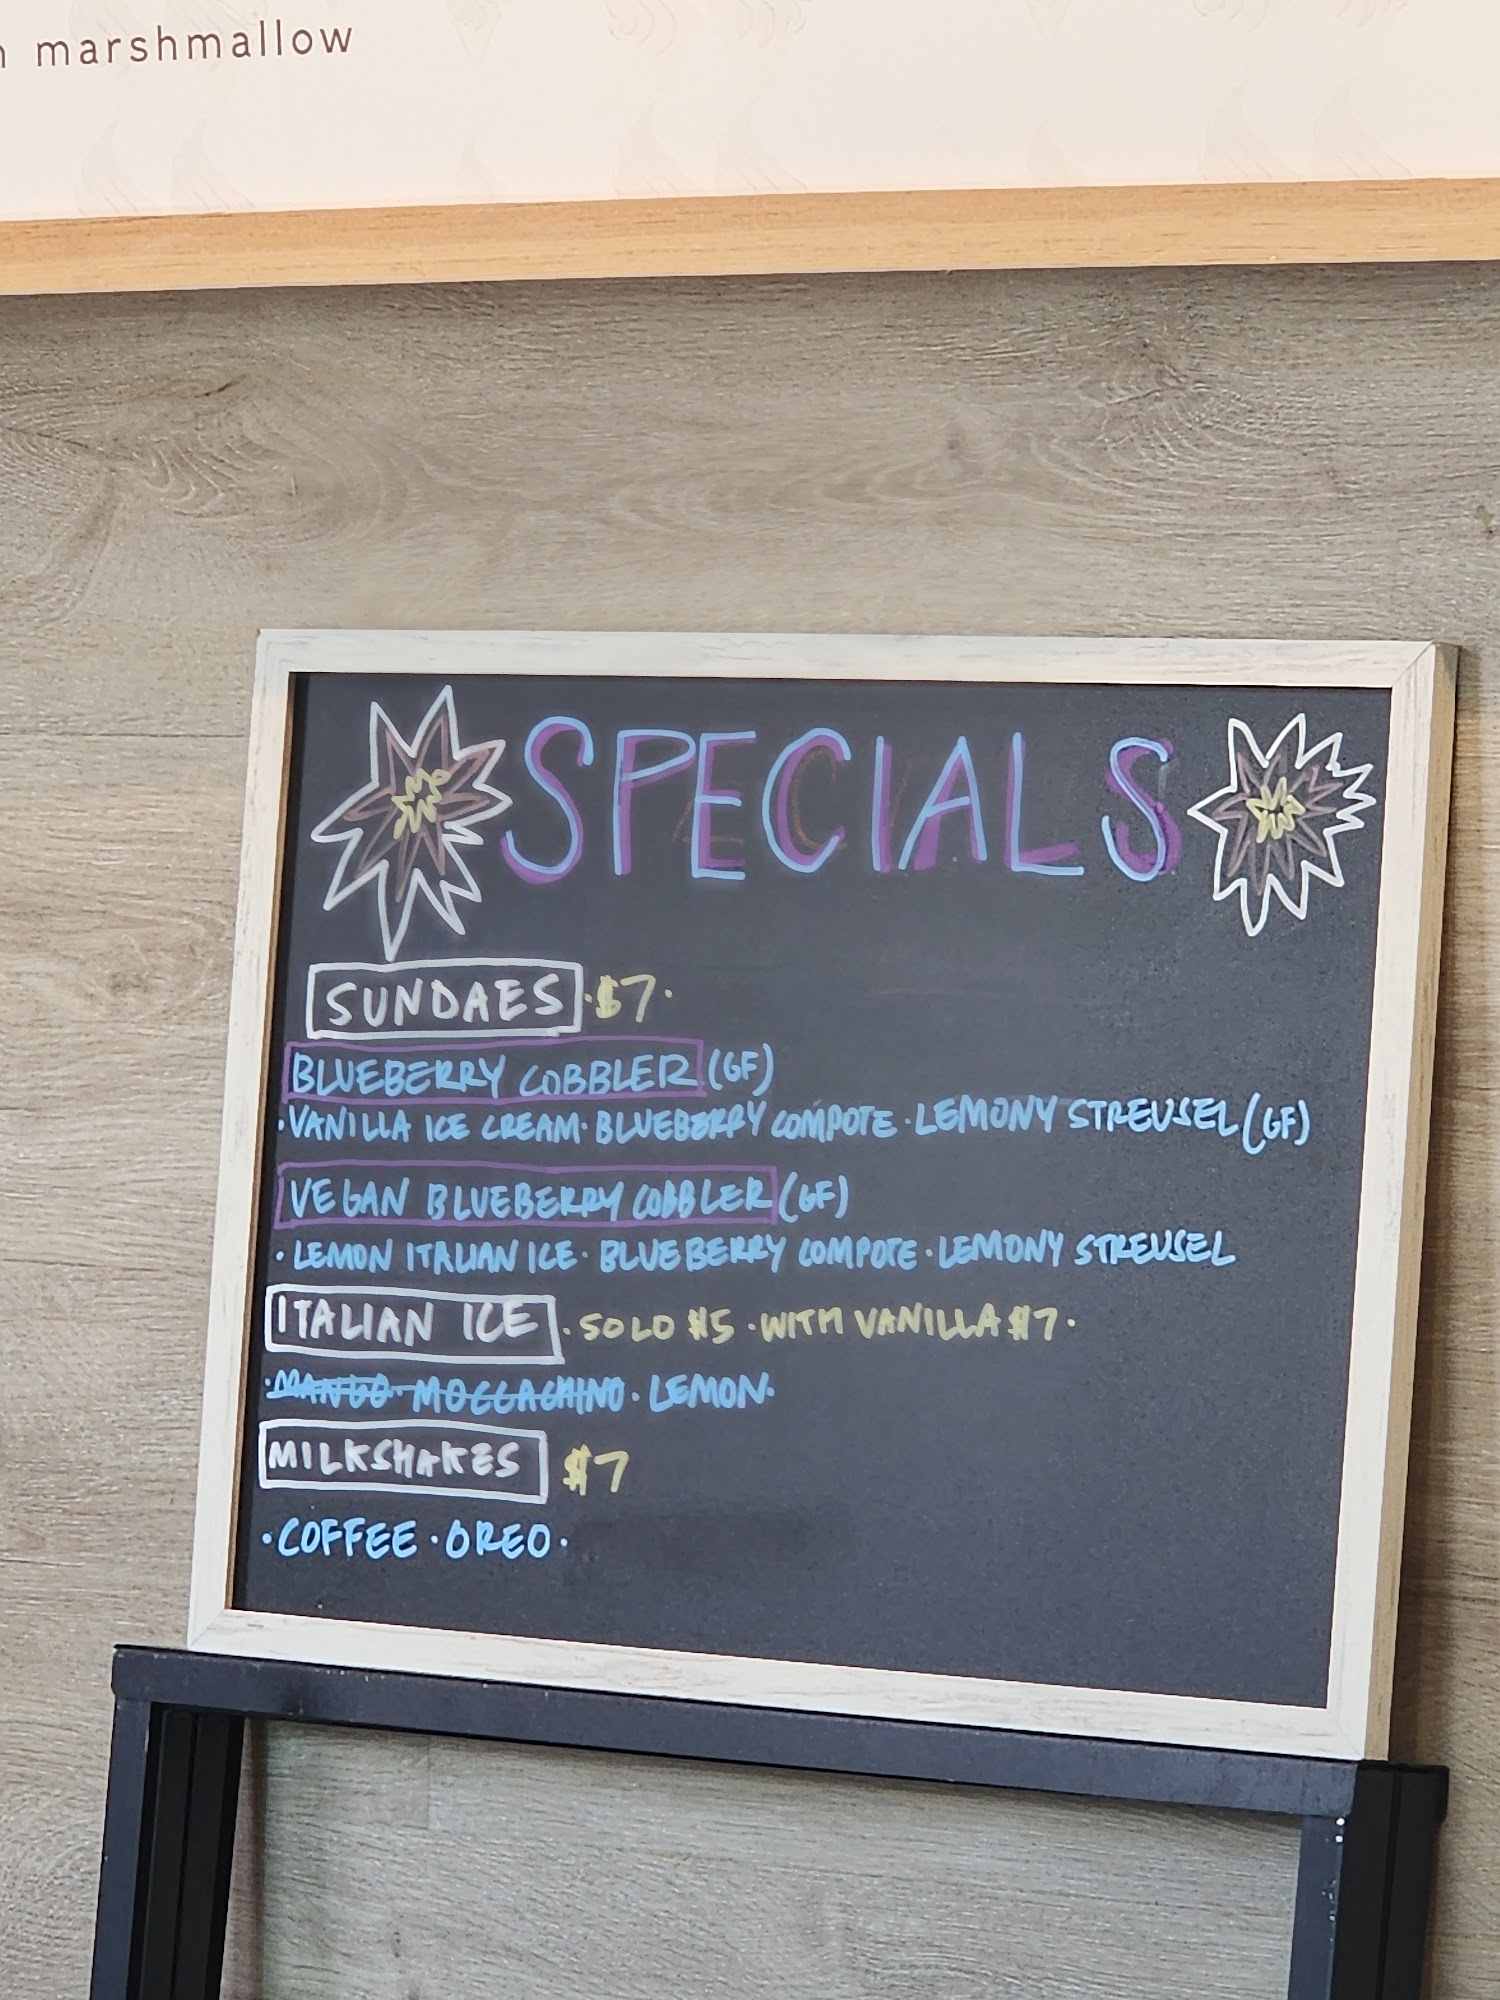 marshmallow
SPECIALS
SUNDAES · $7 ·
BLUEBERRY COBBLER (GF)
· VANILLA ICE CREAM · BLUEBERRY COMPOTE · LEMONY STREUSEL (GF)
VEGAN BLUEBERRY COBBLER (GF)
· LEMON ITALIAN ICE · BLUEBERRY COMPOTE · LEMONY STREUSEL
ITALIAN ICE · SOLO $5 · WITH VANILLA $7 ·
· MANGO · MOCCACHINO · LEMON ·
MILKSHAKES $7
· COFFEE · OREO ·